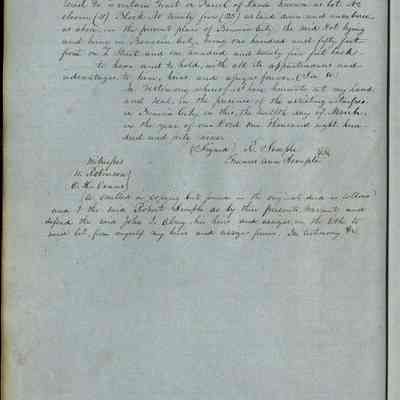 certain Tract or Parcel of Land known as Lot No
eleven (11) Block No Twenty five (25) as laid down and numbered
as above, in the present plan of Benicia City, the said Lot lying
and being in Benicia City, being one hundred and fifty feet
front on I Street and one hundred and twenty five feet back.
to have and to hold, with all its appurtenances and
advantages to him, heirs and assigns forever.
In Testimony whereof, I have hereunto set my hand
and seal, in the presence of the attesting witnesses
in Benicia City, on this, the twelfth day of March,
in the year of our Lord One Thousand eight hun-
dred and
(Signed) R. Semple
Frances Ann Semple
Witnesses
Robinson
Evans
omitted in copying but found in the original deed as follows
and I the said Robert Semple do by these presents, warrant and
defend the said John his heirs and assigns, in the title to
said lot, from myself my heirs and assigns forever. In testimony &c